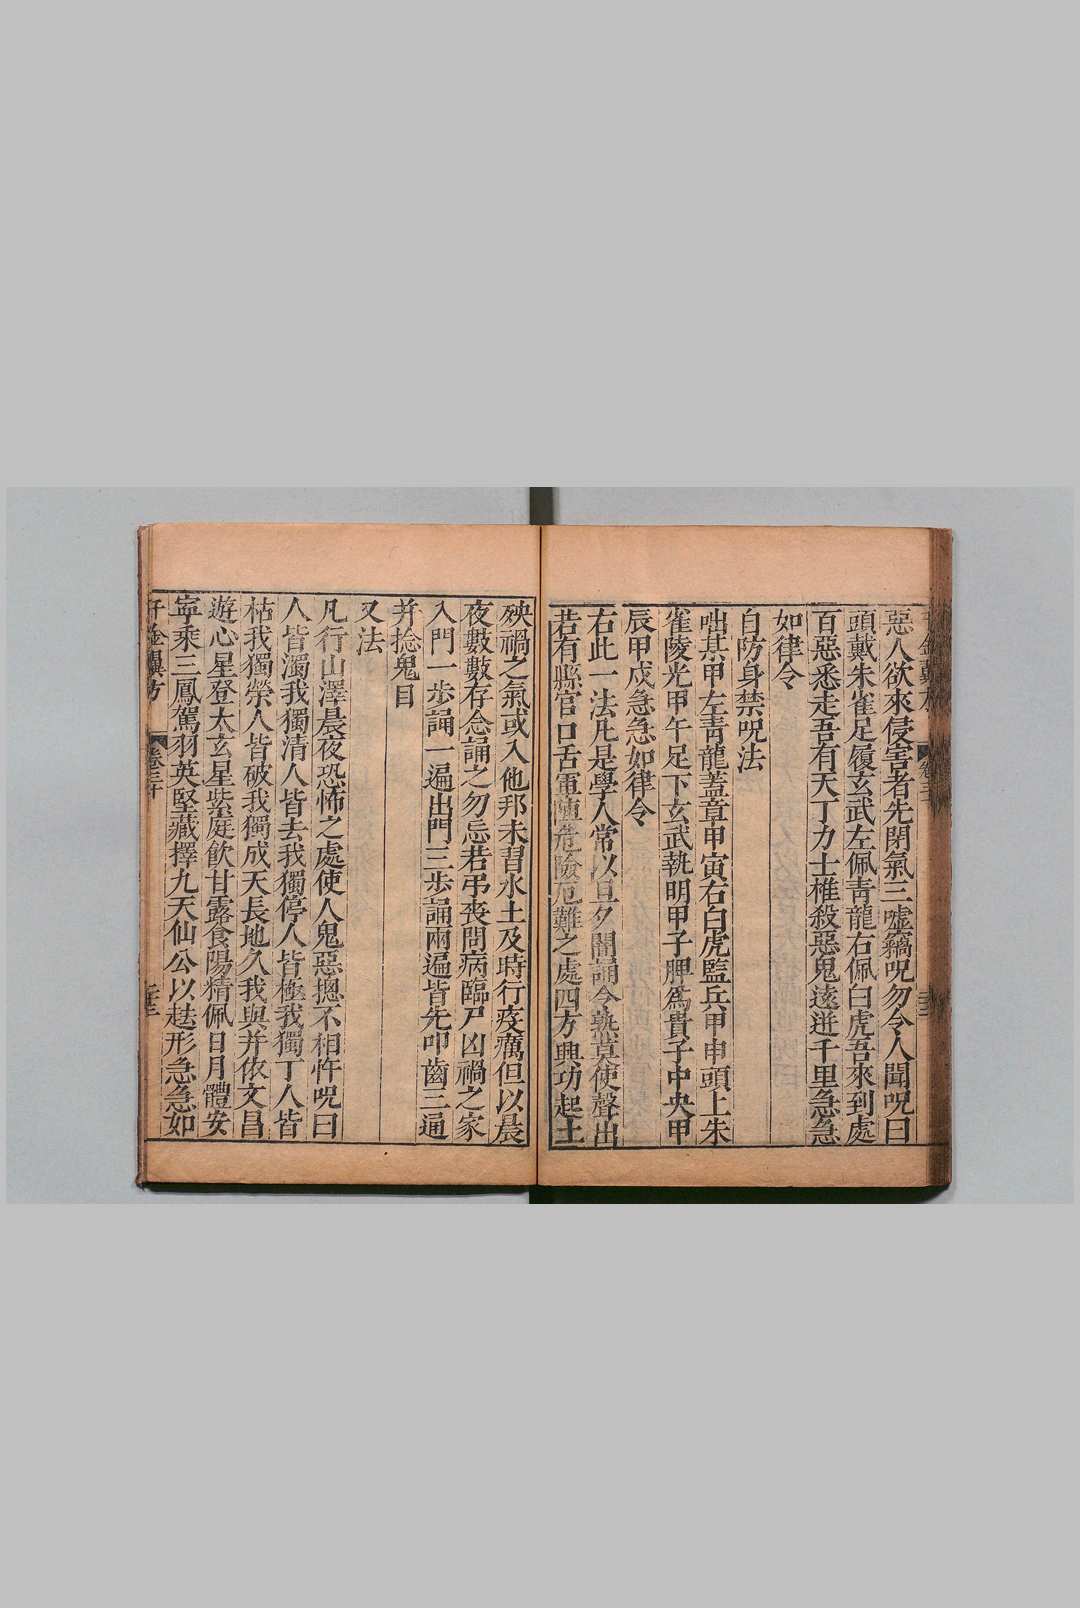 惡人欲來侵害者先閉氣三噓竊呪勿令人聞呪曰
頭戴朱雀足履玄武左佩青龍右佩白虎吾來到處
百惡悉走吾有天丁力士椎殺惡鬼逺迸千里急急
如律令
自防身禁呪法
咄某甲左青龍蓋章甲寅右白虎監兵甲申頭上朱
雀陵光甲午足下玄武執明甲子脾爲貴子中央甲
辰甲戌急急如律令
右此一法凡是學人常以旦夕闇誦令熟莫使聲出
若有縣官口舌軍陣危險厄難之處四方興功起土
殃禍之氣或入他邦未習水土及時行疫癘但以晨
夜數數存念誦之勿忘若弔喪問病臨尸凶禍之家
入門一步誦一遍出門三步誦兩遍皆先叩齒三通
并捻鬼目
又法
凡行山澤晨夜恐怖之處使人鬼惡摠不相忤呪曰
人皆濁我獨清人皆去我獨停人皆極我獨丁人皆
枯我獨榮人皆破我獨成天長地久我與并依文昌
遊心星登太玄星紫庭飲甘露食陽精佩日月體安
寧乘三鳳駕羽英堅藏擇九天仙公以𧺫形急急如
千金翼方 卷三十